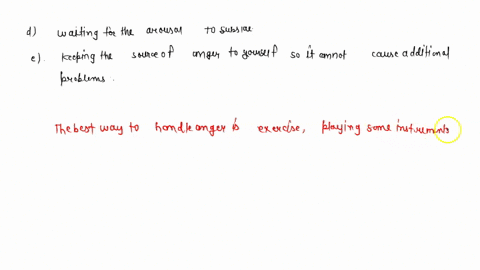 d) waiting for the arousal to subside
e). keeping the source of anger to yourself so it cannot cause additional
problems.
The best way to handle anger is exercise, playing some instruments